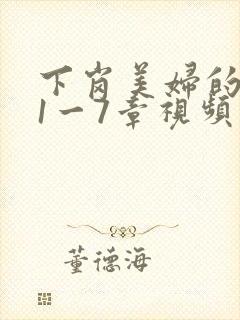 下岗美婦的
1一7章視頻
董德海